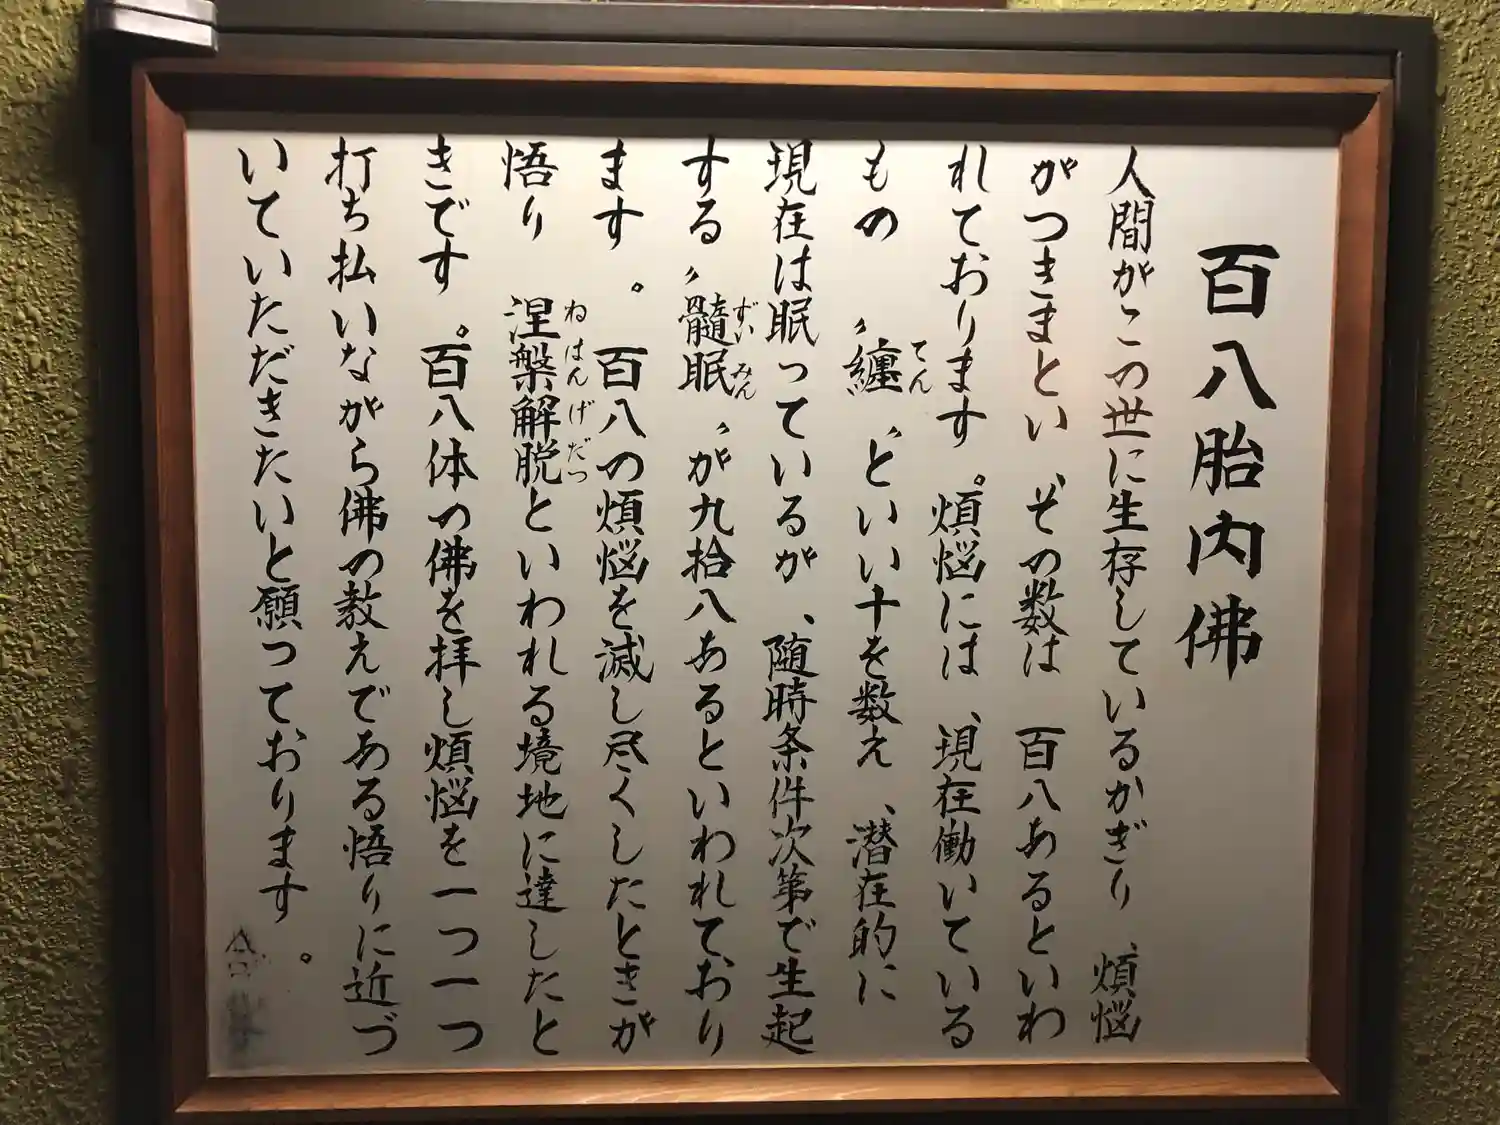 百八胎内佛
人間がこの世に生存しているかぎり、煩悩
がつきまとい、その数は 百八あるといわ
れております。煩悩には、現在働いている
もの〝纏〟といい十を数え、潜在的に
てん
現在は眠っているが、随時条件次第で生起
する〝髄眠〟が九拾八あるといわれており
ずいみん
ます。百八の煩悩を滅し尽くしたときが
悟り 涅槃解脱といわれる境地に達したと
ねはんげだつ
きです。百八体の佛を拝し煩悩を一つ一つ
打ち払いながら佛の教えである悟りに近づ
いていただきたいと願っております。